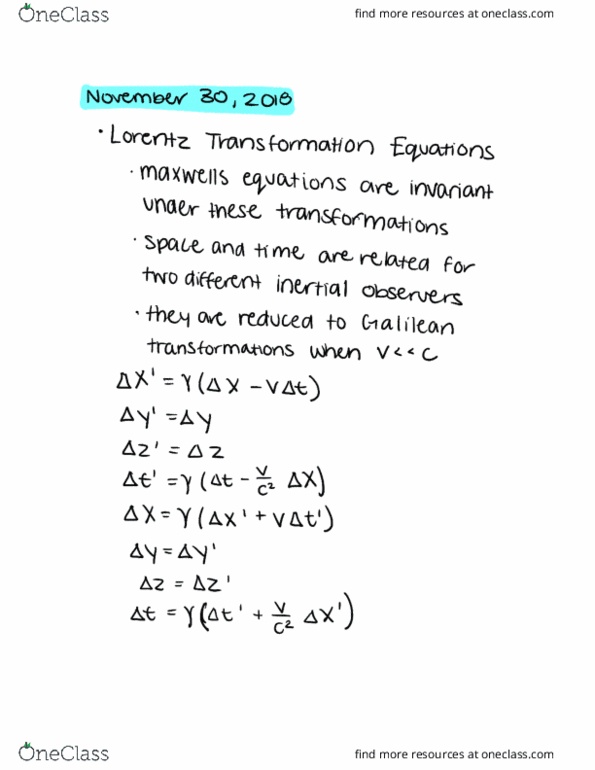 OneClass
find more resources at oneclass.com
November 30, 2018
· Lorentz Transformation Equations
· maxwells equations are invariant
under these transformations
· space and time are related for
two different inertial observers
· they are reduced to Galilean
transformations when V<<C
ΔX' = γ(ΔX - VΔt)
Δy' = Δy
Δz' = Δz
Δt' = γ(Δt - V/C² ΔX)
ΔX = γ(ΔX' + VΔt')
Δy = Δy'
Δz = Δz'
Δt = γ(Δt' + V/C² ΔX')
OneClass
find more resources at oneclass.com